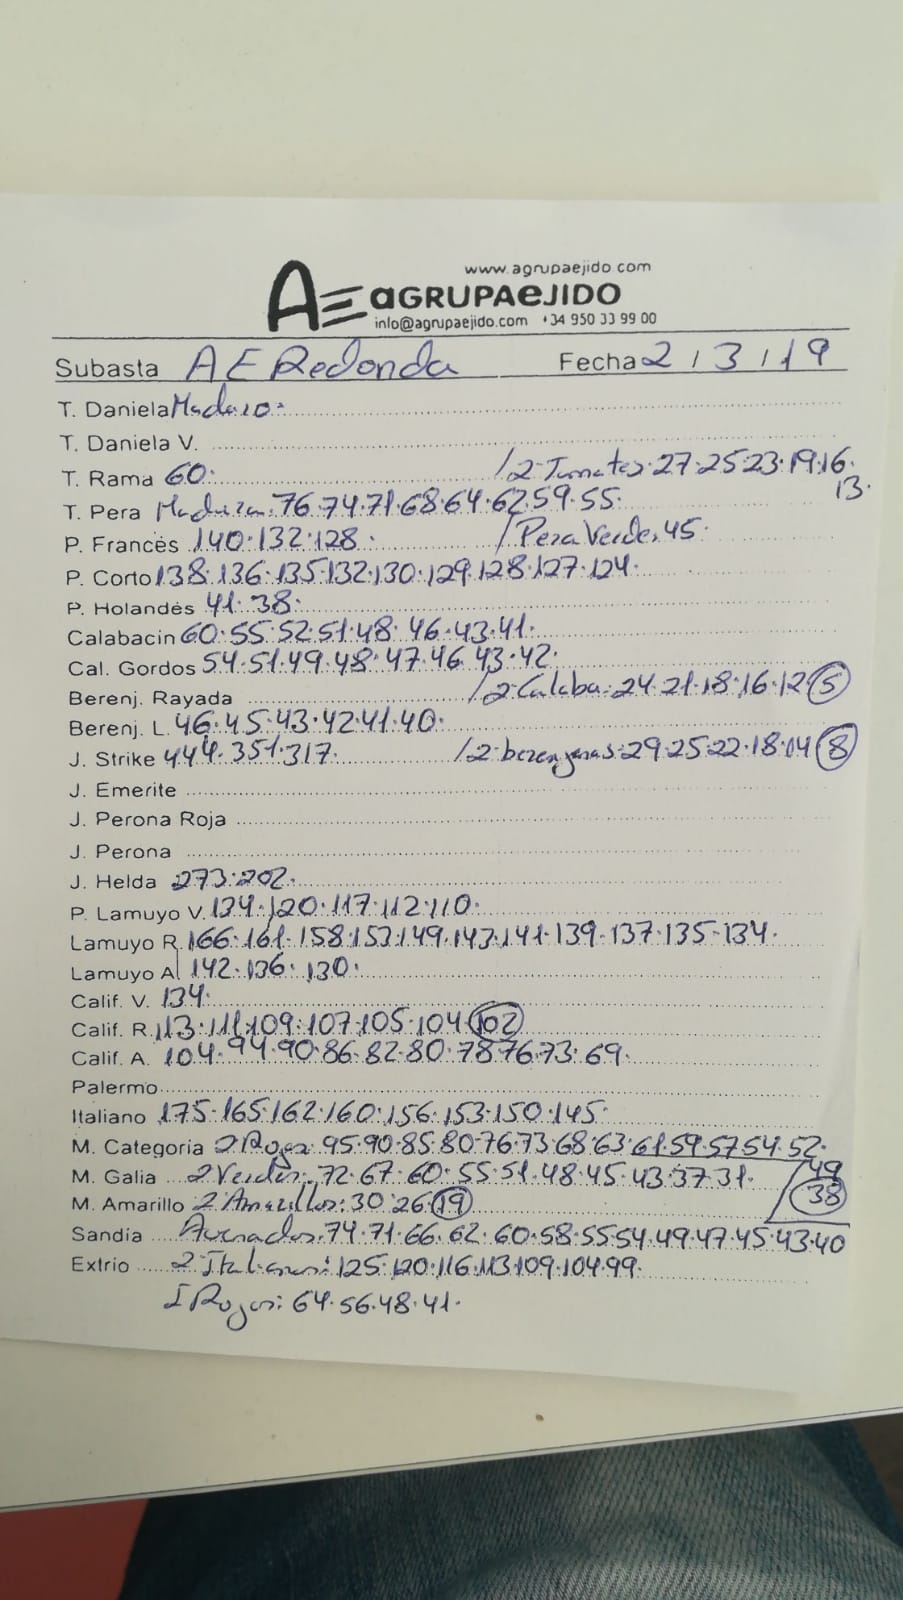 www.agrupaejido.com
AE aGRUPAeJIDO
info@agrupaejido.com +34 950 33 99 00
Subasta AE Redonda Fecha 2 / 3 / 19
T. Daniela Maduro:
T. Daniela V.
T. Rama 60. /2-Tomates.27.25.23.19.16.
13.
T. Pera Madura.76.74.71.68.64.62.59.55.
P. Francés 140.132.128. /Pera Verde.45.
P. Corto 138.136.135.132.130.129.128.127.124.
P. Holandés 41.38.
Calabacin 60.55.52.51.48.46.43.41.
Cal. Gordos 54.51.49.48.47.46.43.42.
Berenj. Rayada /2-Calaba:24.21.18.16.12 5
Berenj. L. 46.45.43.42.41.40.
J. Strike 444.351.317. /2 berenjenas:29.25.22.18.04 8
J. Emerite
J. Perona Roja
J. Perona
J. Helda 273.202.
P. Lamuyo V. 134.120.117.112.110.
Lamuyo R. 166.161.158.153.149.143.141.139.137.135.134.
Lamuyo A 142.136.130.
Calif. V. 134.
Calif. R. 113.111.109.107.105.104.102
Calif. A. 104.94.90.86.82.80.78.76.73.69.
Palermo
Italiano 175.165.162.160.156.153.150.145.
M. Categoria 2 Rojos: 95.90.85.80.76.73.68.63.61.59.57.54.52.
49
M. Galia 2 Verdes:.72.67.60.55.51.48.45.43.37.31.
38
M. Amarillo 2 Amarillos:30.26.19
Sandia Asurados.74.71.66.62.60.58.55.54.49.47.45.43.40
Extrio 2 Italianos:125.120.116.113.109.104.99.
I Rojos: 64.56.48.41.